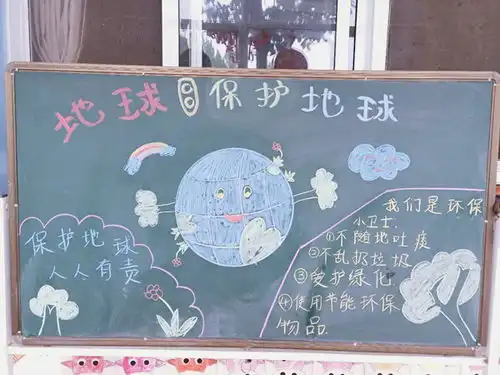 地球日保护地球
保护地球
人人有责
我们是环保
小卫士.
①不随地吐痰
②不乱扔垃圾
③爱护绿化
④使用节能环保
物品